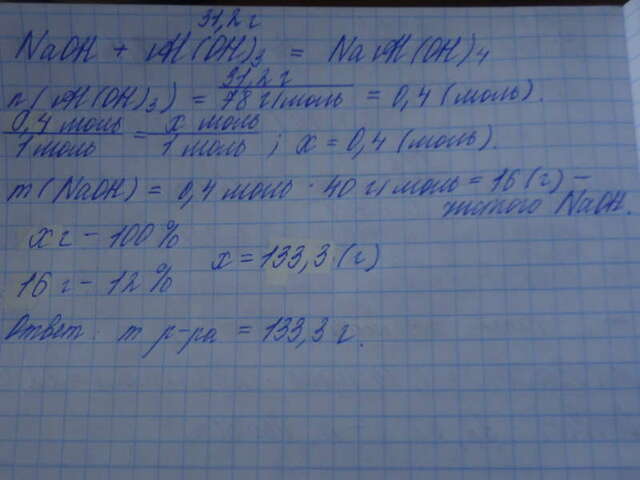 31,2 г
NaOH + Al(OH)3 = NaAl(OH)4
n(Al(OH)3) = 31,2 г / 78 г/моль = 0,4 (моль).
0,4 моль / 1 моль = x моль / 1 моль ; x = 0,4 (моль).
m(NaOH) = 0,4 моль · 40 г/моль = 16 (г) –
чистого NaOH.
x г – 100 %
x = 133,3 (г)
16 г – 12 %
Ответ: m р-ра = 133,3 г.